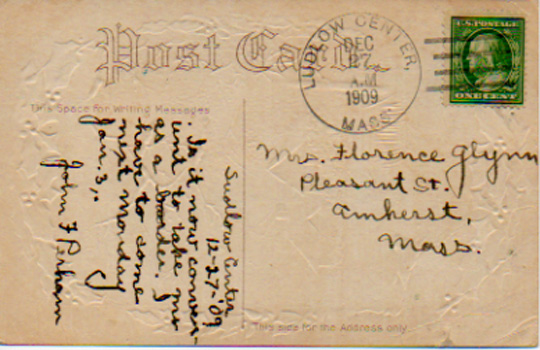 Post Card.
LUDLOW CENTER,
DEC
27
A.M
1909
MASS.
U.S. POSTAGE
ONE CENT
This Space for Writing Messages
Ludlow Center
12-27-'09
Is it now conven-
ient to take me
as a boarder. I
have to come
next Monday
Jan. 3,.
John F Perham
Mrs. Florence Glynn
Pleasant St.
Amherst,
Mass.
This side for the Address only.